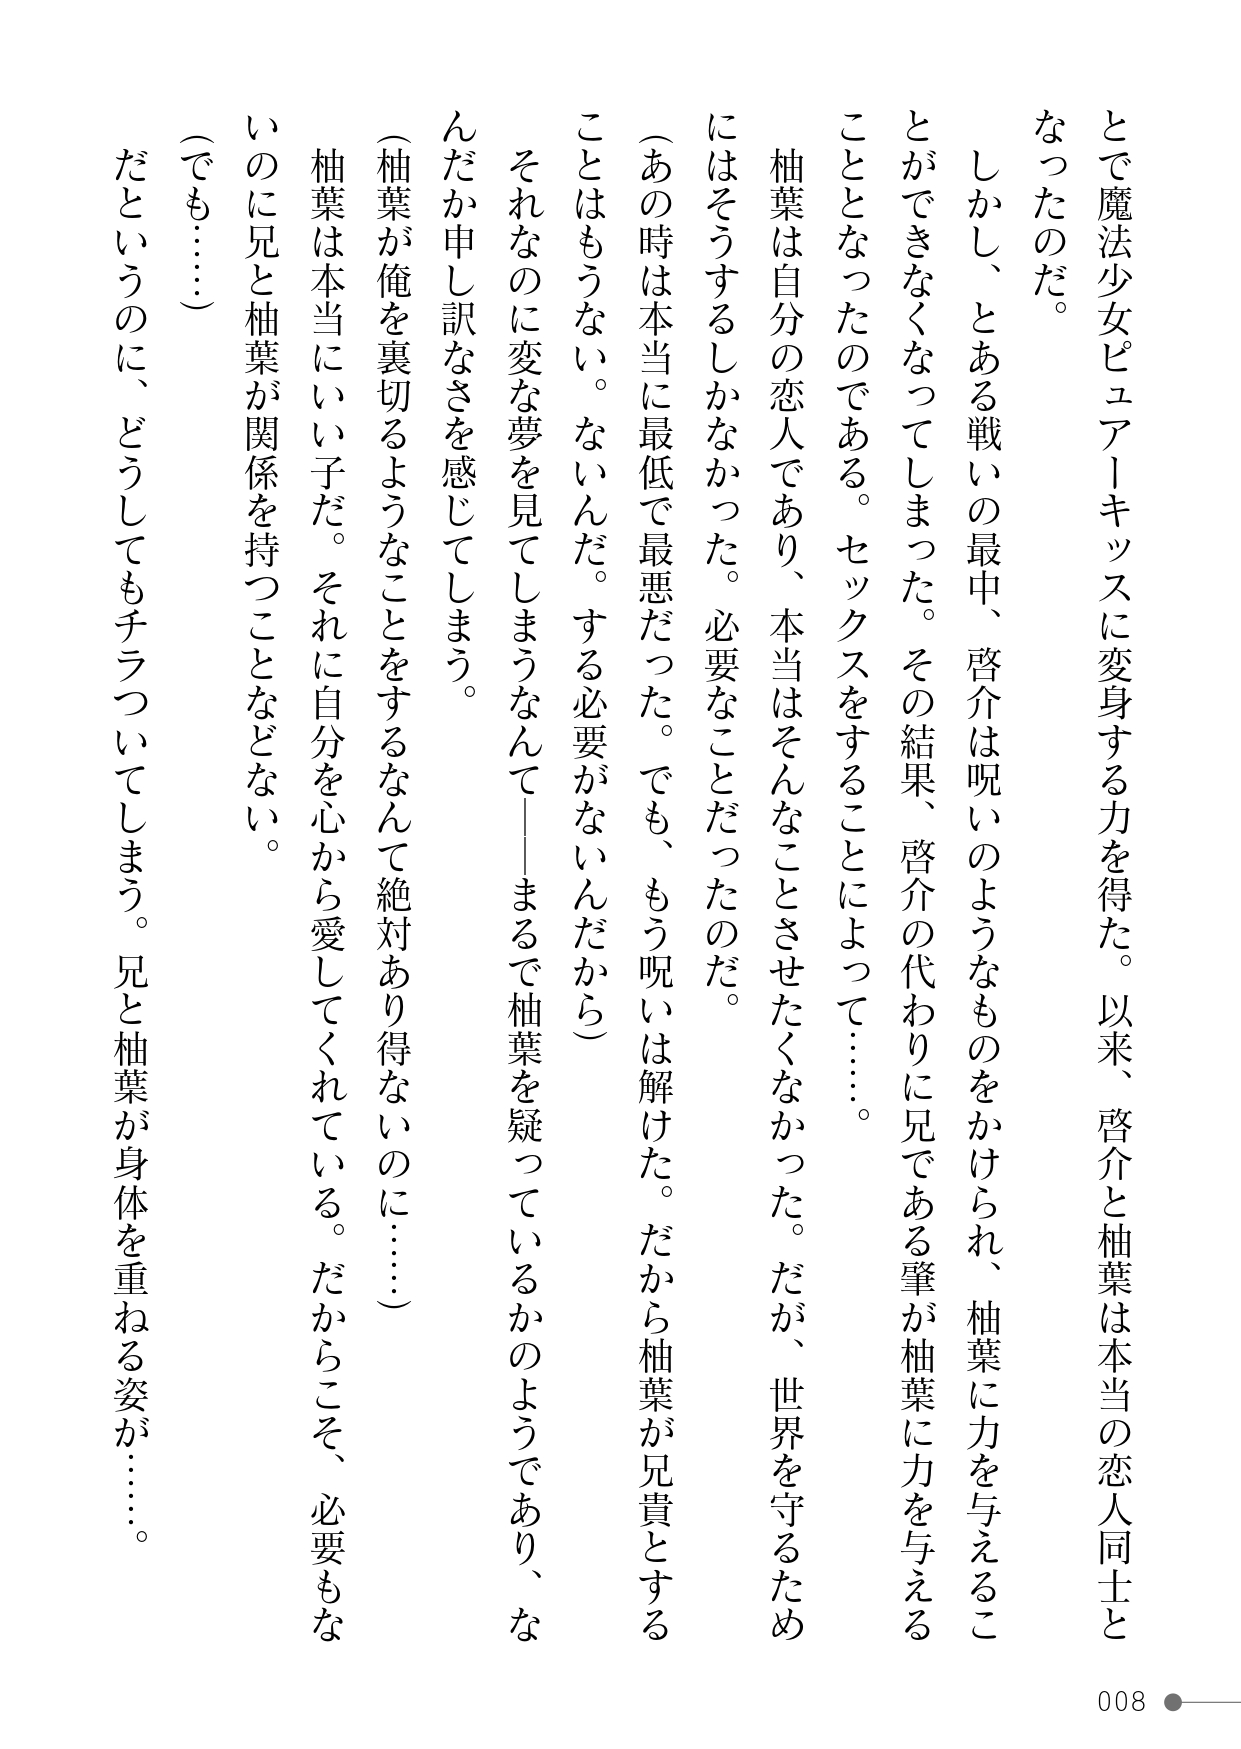 とで魔法少女ピュアーキッスに変身する力を得た。以来、啓介と柚葉は本当の恋人同士と
なったのだ。
　しかし、とある戦いの最中、啓介は呪いのようなものをかけられ、柚葉に力を与えるこ
とができなくなってしまった。その結果、啓介の代わりに兄である肇が柚葉に力を与える
こととなったのである。セックスをすることによって……。
　柚葉は自分の恋人であり、本当はそんなことさせたくなかった。だが、世界を守るため
にはそうするしかなかった。必要なことだったのだ。
（あの時は本当に最低で最悪だった。でも、もう呪いは解けた。だから柚葉が兄貴とする
ことはもうない。ないんだ。する必要がないんだから）
　それなのに変な夢を見てしまうなんて――まるで柚葉を疑っているかのようであり、な
んだか申し訳なさを感じてしまう。
（柚葉が俺を裏切るようなことをするなんて絶対あり得ないのに……）
　柚葉は本当にいい子だ。それに自分を心から愛してくれている。だからこそ、必要もな
いのに兄と柚葉が関係を持つことなどない。
（でも……）
　だというのに、どうしてもチラついてしまう。兄と柚葉が身体を重ねる姿が……。
008